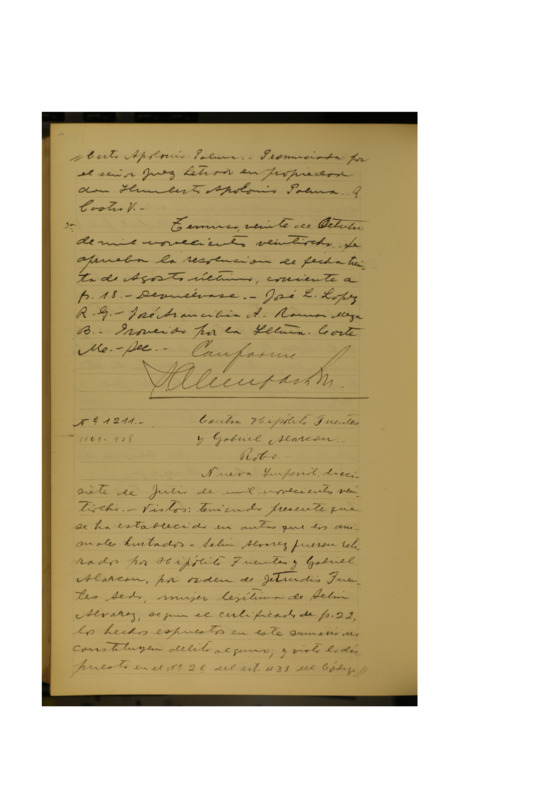 //berto Apolonio Palma.- Pronunciada por
el señor Juez Letrado en propiedad
don Humberto Apolonio Palma. R
Castro V.-
Temuco, veinte de Octubre
de mil novecientos veintiocho. Se
aprueba la resolucion de fecha trein-
ta de Agosto último, corriente a
fs. 18.- Devuélvase.- José L. Lopez
R. G.- José Arancibia A. Ramon Meza
B.- Proveido por la Iltma. Corte
Me.- Sec.- Conforme
Nº 1211.- Contra Hipólito Fuentes
y Gabriel Alarcon.
Robo.-
Nueva Imperial, dieci-
siete de Julio de mil novecientos vein-
tiocho.- Vistos: teniendo presente que
se ha establecido en autos que los ani-
males hurtados a Alvarez fueron reti-
rados por Hipólito Fuentes y Gabriel
Alarcon, por orden de Jetrudis Fuen-
tes mujer lejítima de
Alvarez, segun el certificado de fs. 22,
los hechos espuestos en este sumario no
constituyen delito alguno; y visto lo dis-
puesto en el Nº 2º del art. 438 del Código//